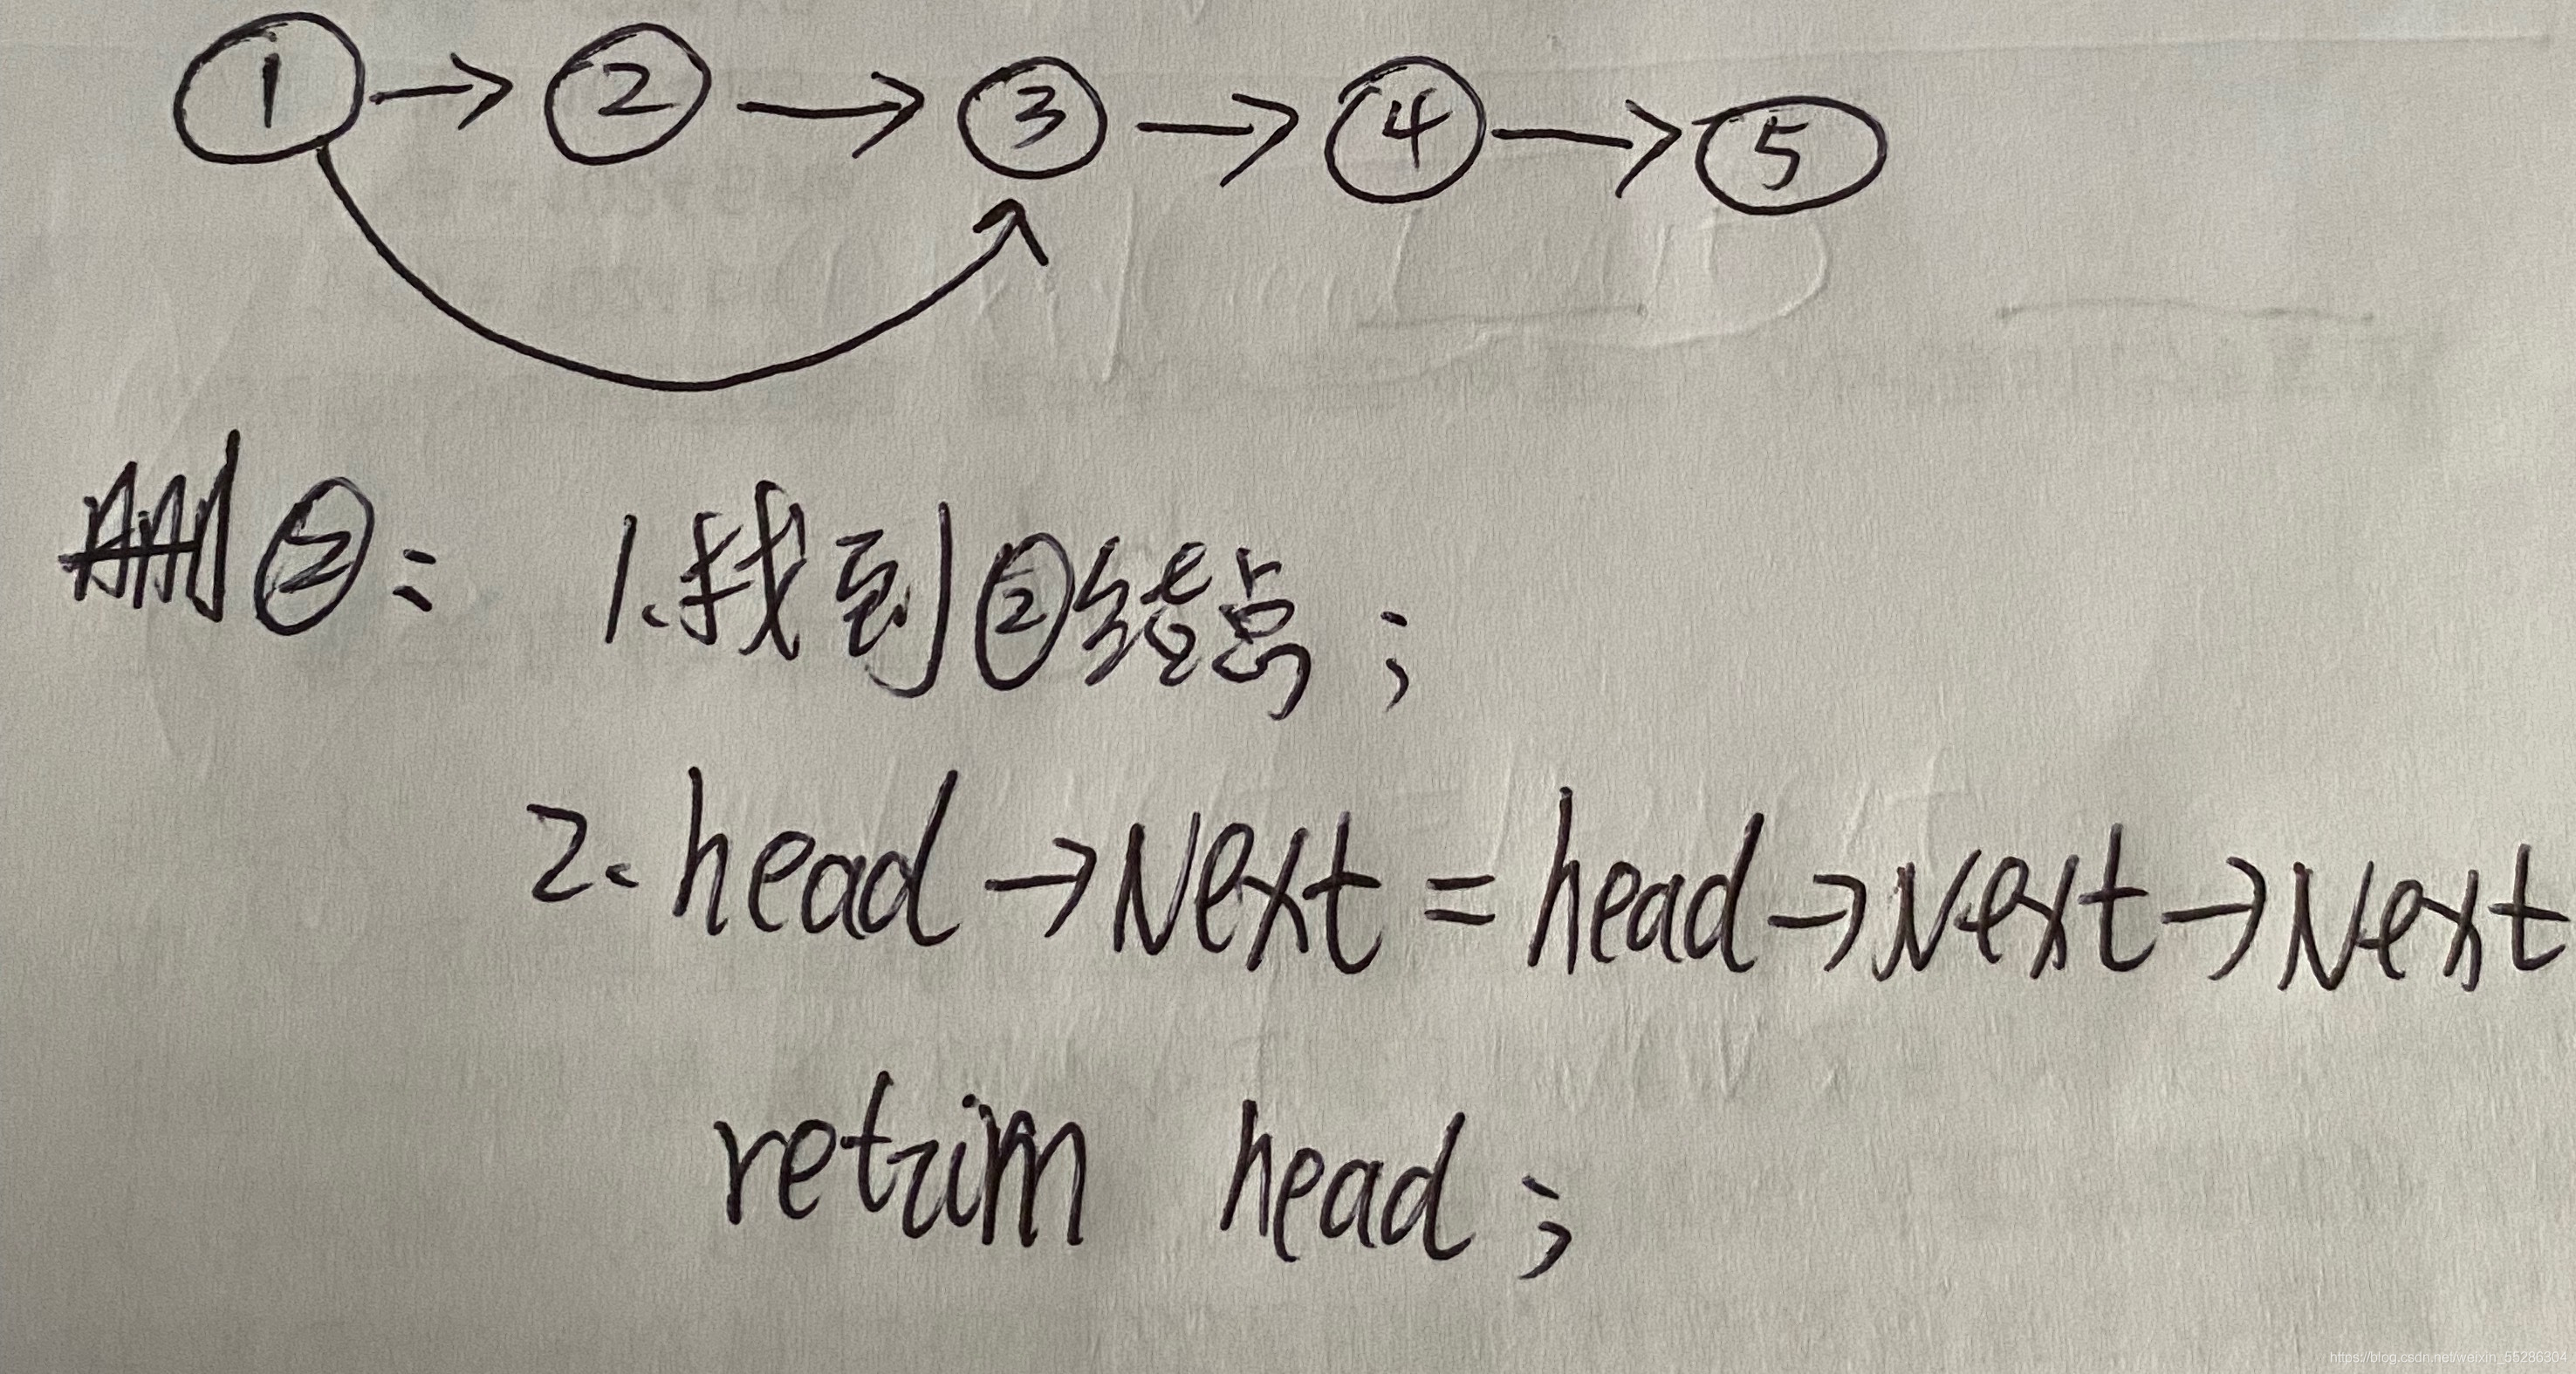 ① → ② → ③ → ④ → ⑤
删②: 1.找到②结点;
2. head → Next = head → Next → Next
return head;
https://blog.csdn.net/weixin_55286304